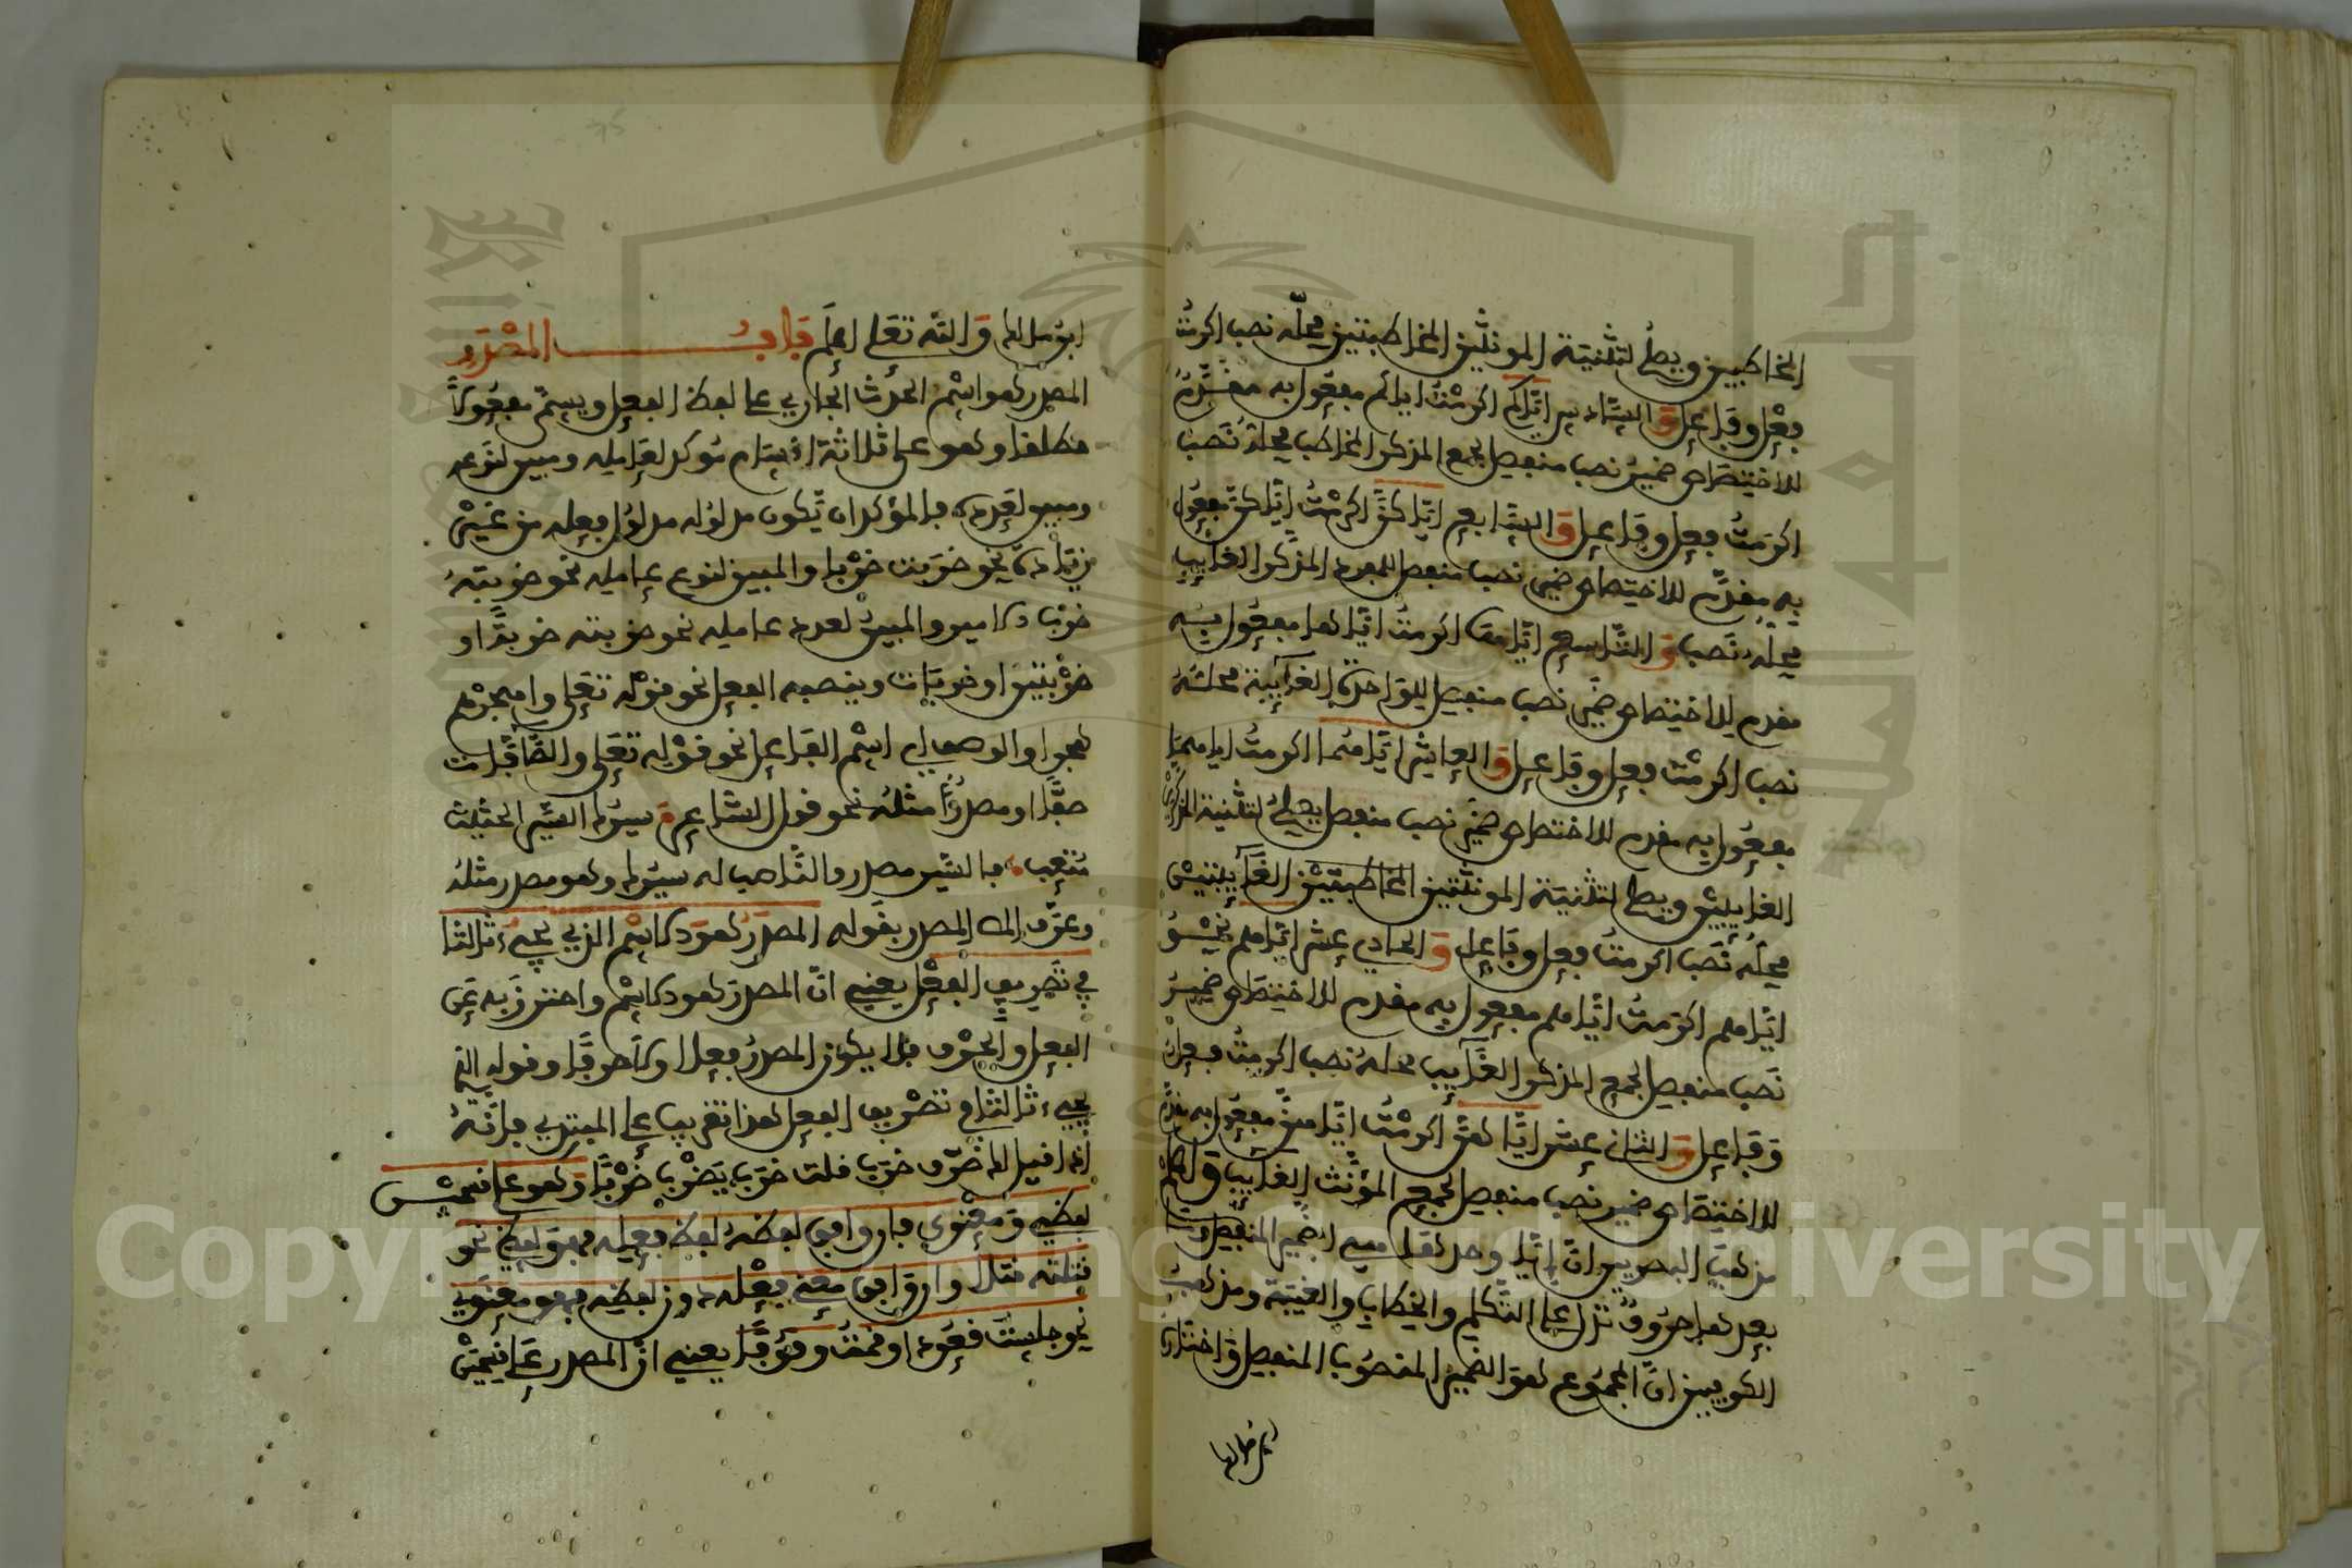 المخاطبين ويصلح لتثنية المونثين المخاطبتين محلّه نصب اكرمتُ
فِعْل وفَاعِل وَالسَّادِس إيّاكم اكرمْتُ اياكم مفعول به مقدَّمٌ
للاختِصَاص ضمير نصب منفصل لجمع المذكر المخاطب محلهُ نَصب
اكرَمتُ فعل وفاعل وَالسَّابع ايّاكنّ اكرمْتُ إيّاكنّ مفعول
به مقدّم للاختصاص ضمير نصب منفصل للمفرد المذكر الغايب
محله نَصب وَالتّاسع إيّاها اكرمتُ ايّاها مفعول به
مقدم للاختصاص ضمير نصب منفصل للواحدة الغآئبة محلهُ
نصب اكرمْت فعل وفاعل وَالعاشر ايّاهما اكرمتُ اياهما
مفعول به مقدم للاختصاص ضمير نصب منفصل يصلح لتثنية المذكرين
الغايبين ويصلح لتثنية المونثتين المخاطبتين الغآيبتين
محلُه نَصب اكرمتُ فعل وفَاعل وَالحادي عشر ايّاهم نحو
ايّاهم اكرَمتُ ايّاهم مفعول به مقدم للاختصَاص ضميرُ
نَصب منفصل لجمع المذكر الغَآيب محلهُ نصب اكرمتُ فعل
وَفَاعل وَالثاني عشر ايّاهنّ اكرمْتُ ايّاهنّ مفعُول به مقدم
للاختِصَاص ضمير نصب منفصل لجمع المؤنّث الغآيب
مذهَب البصريين انّ إيّا وحدهَا هي الضمير المنفصل
بعدها حرُوفٌ تدل على التّكلم والخطاب والغيبة ومذهب
الكوفيين انّ المجمُوع هوَ الضمير المنصُوب المنفصل وَاختاره
ابن مالك
ابن مالك وَالله تعَلى اعلَم بَابُ المصْدَر
المصدر هو اسْم الحدث الجاري على لفظ الفعل ويسمّى مفعُولاً
مطلقا وهو على ثلاثة اقسَام مُوكد لعَامله ومبين لنَوعه
ومبين لعَدده فالمؤكد ان يّكون مدلوُله مدلوُل فعله من غَيْر
زيَادَة نحو ضرَبت ضرْبا والمبين لنوع عامله نحو ضربتهُ
ضرْبَ الامير والمبينُ لعدد عامله نحو ضربته ضربةً او
ضرْبتين او ضربَات وينصبه الفعل نحو قوْله تعَلى واهجرْهم
هجرا والوصف اي اسْم الفَاعل نحو قوْله تعَلى والصَّافّات
صفًّا او مصدرٌ مثلهُ نحو قول الشاعر سيرُك السّير الحثيث
مُتعِب فالسّير مصدر والنّاصب له سيرُك وهو مصدر مثلهُ
وعرّف المص المصدر بقَوله المصدرُ هوَ الاسْم الذي يجيءُ ثالثا
في تَصريف الفعْل يعنِي انّ المصدرَ هو الاسْم واحترزَ به عَن
الفعل والحرف فلا يكُون المصدرُ فعلا ولا حرفًا وقوله الذي
يجيء ثالثا في تصْريف الفعل هذا تقريب على المبتدي فانّهُ
اذا قيل لك صرّف ضرَب قلت ضرَب يَضْرب ضرْبًا وَهو على قسمين
لفظي وَمعْنوي فان وافق لفظهُ لفظ فعله فهوَ لفظي نحو
قتلته قتلا وان وَافق معنى فِعْله دون لفظه فهو معنَوي
نحو جلستُ قعُودا وقمتُ وقوفًا يعنِي انّ المصدر عَلى قسمين